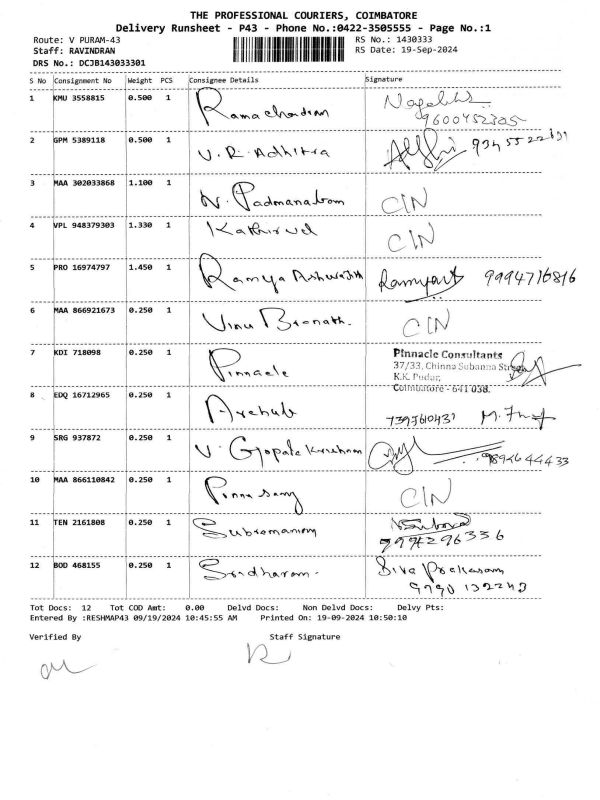 THE PROFESSIONAL COURIERS, COIMBATORE
Delivery Runsheet - P43 - Phone No.:0422-3505555 - Page No.:1
Route: V PURAM-43 RS No.: 1430333
Staff: RAVINDRAN RS Date: 19-Sep-2024
DRS No.: DCJB143033301
S No Consignment No Weight PCS Consignee Details Signature
1 KMU 3558815 0.500 1 Ramachadran
9600452305
2 GPM 5389118 0.500 1 V. R. Adhitra
3 MAA 302033868 1.100 1 N. Padmanabam CIN
4 VPL 948379303 1.330 1 Kathirvel CIN
5 PRO 16974797 1.450 1 Ramya Ashwathth 9994716816
6 MAA 866921673 0.250 1 Vinu CIN
7 KDI 718098 0.250 1 Pinnacle Pinnacle Consultants
37/33, Chinna Subanna Street
K.K. Pudur,
Coimbatore - 641 038.
8 EDQ 16712965 0.250 1
9 SRG 937872 0.250 1 V. Gopala Krishnan 9894644433
10 MAA 866110842 0.250 1 Ponnusamy CIN
11 TEN 2161808 0.250 1 Subramaniam
9994296336
12 BOD 468155 0.250 1 Sridharan. Siva Prakasam
9790 132243
Tot Docs: 12 Tot COD Amt: 0.00 Delvd Docs: Non Delvd Docs: Delvy Pts:
Entered By :RESHMAP43 09/19/2024 10:45:55 AM Printed On: 19-09-2024 10:50:10
Verified By Staff Signature